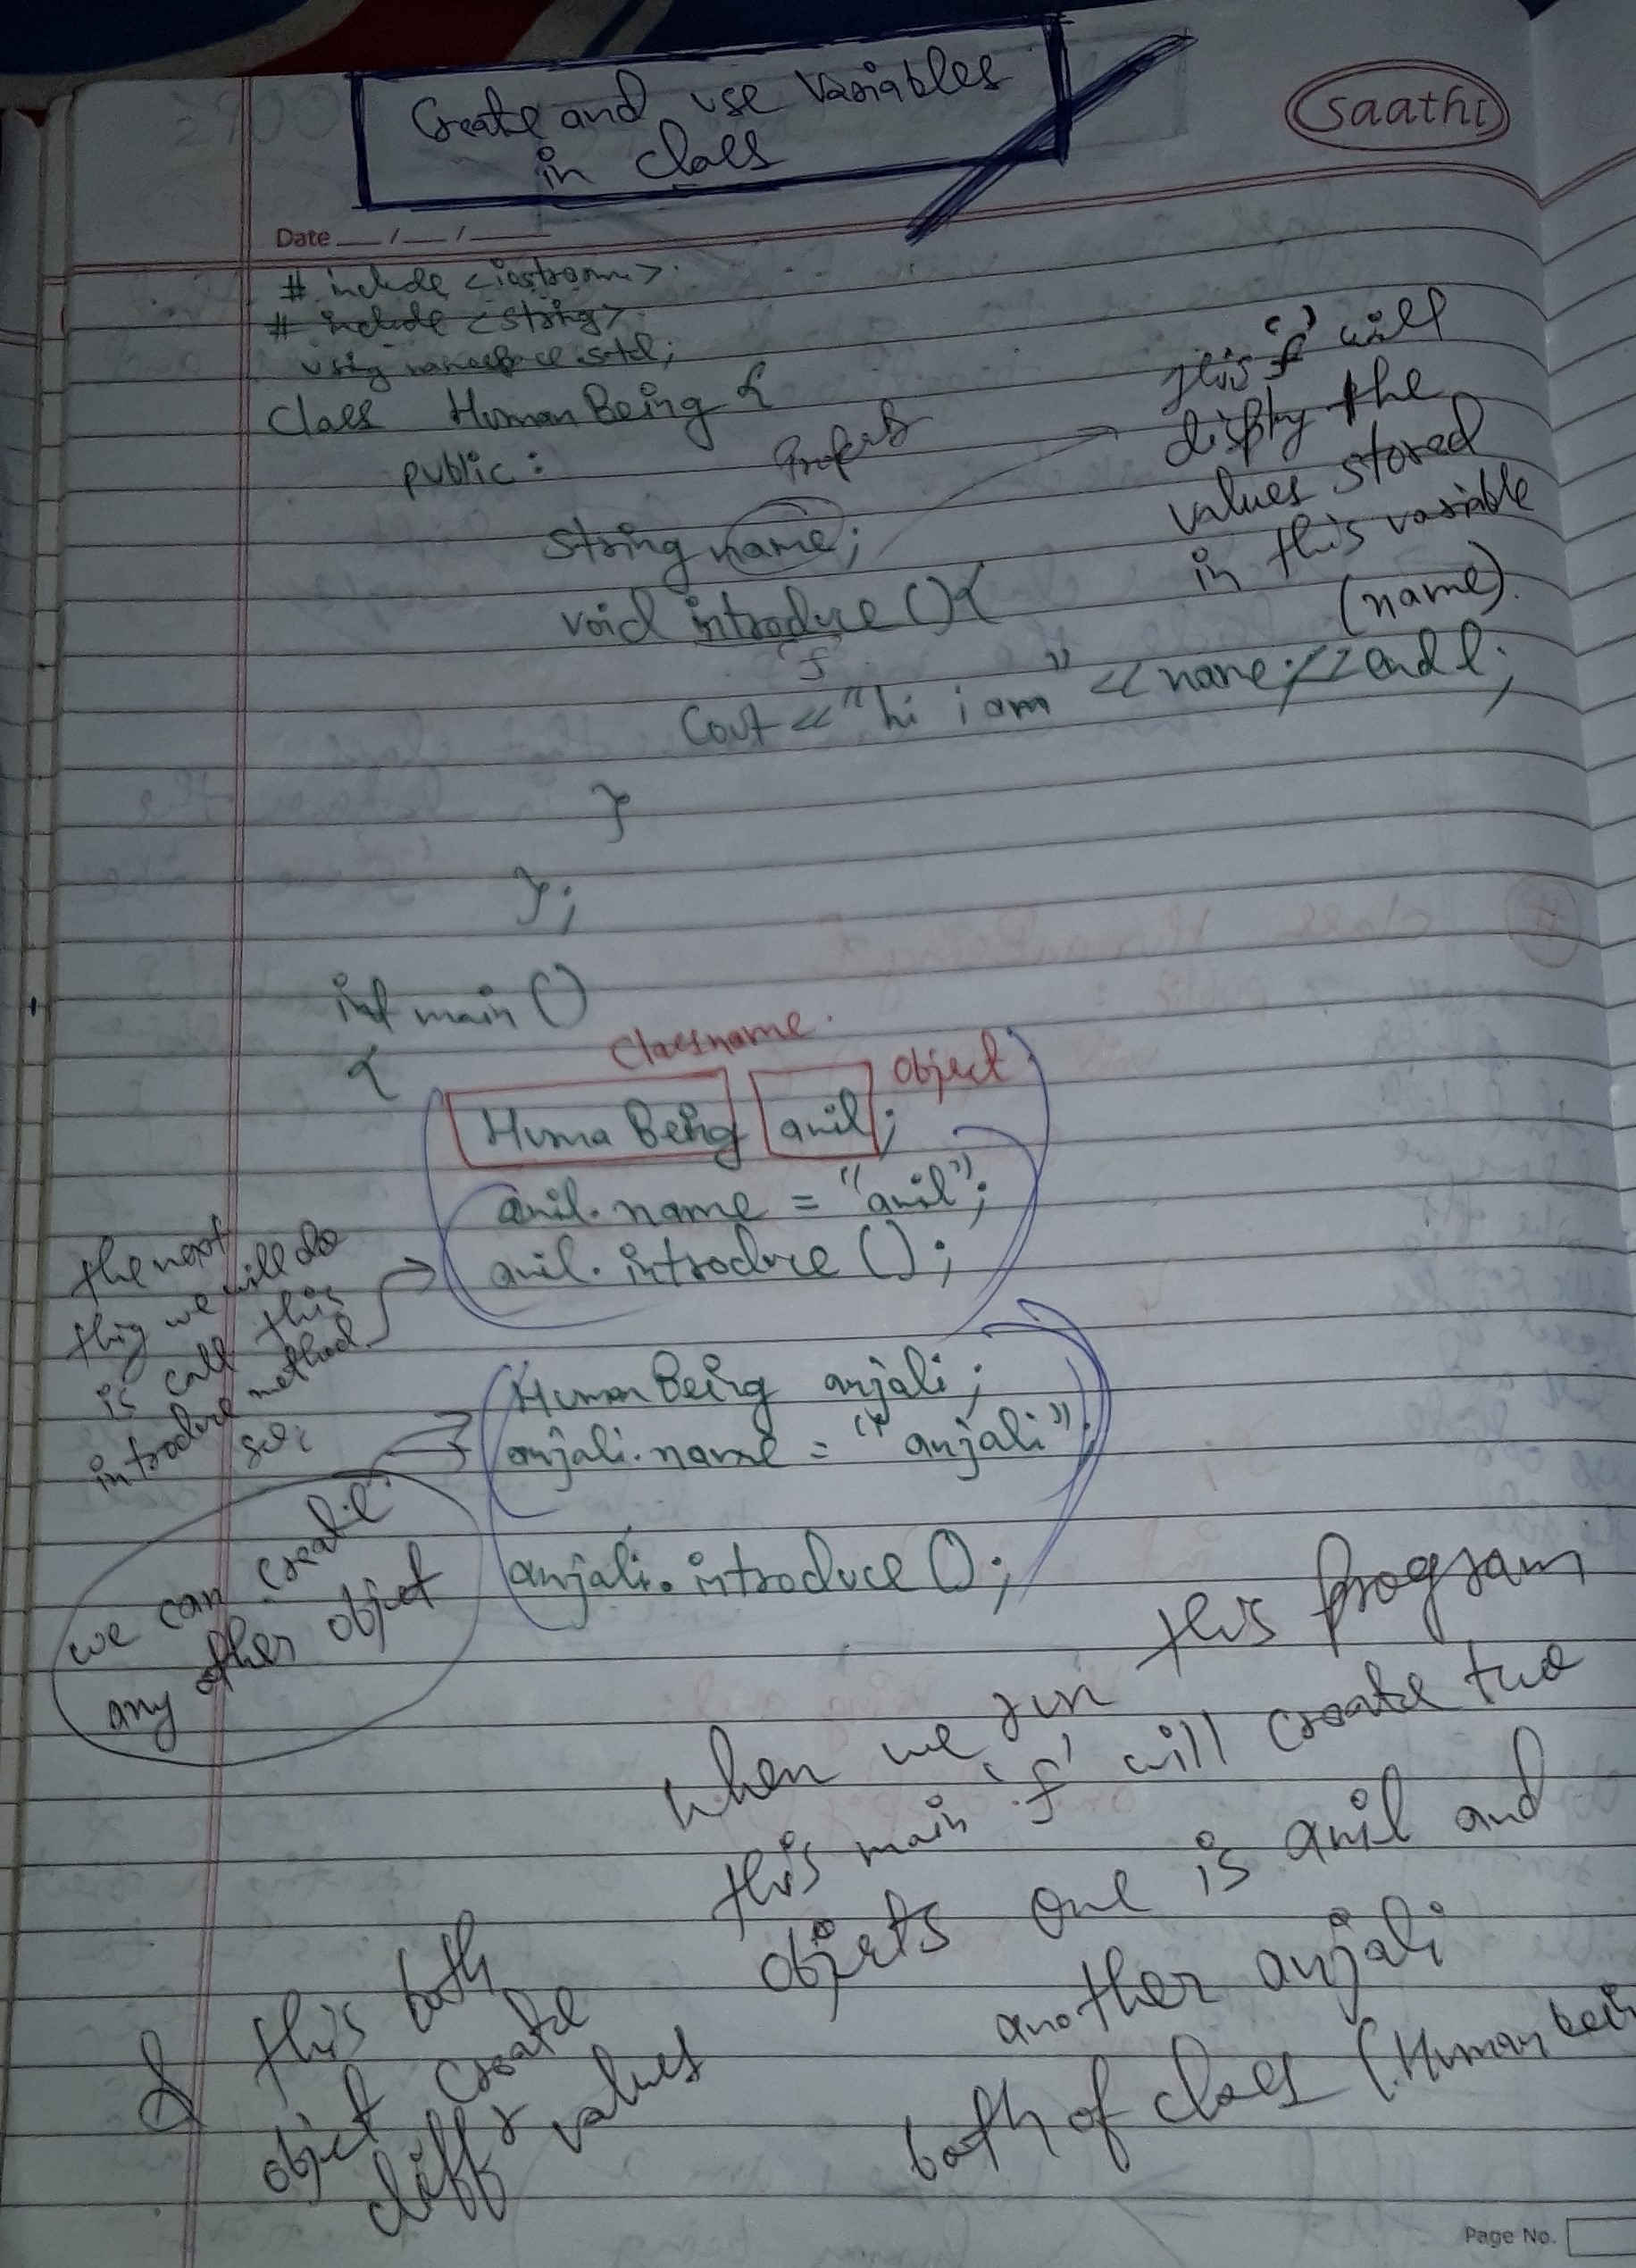 Create and use Variables
in class
saathi
Date __/__/____
# include <iostream>
# include <string>
using namespace std;
class HumanBeing {
public:
string name;
void introduce () {
'f'
Cout << "hi i am" << name; << endl;
}
};
this 'f' will
display the
values stored
in this variable
(name).
int main ()
{
Classname.
object
HumaBeing anil;
anil.name = "anil";
anil.introduce ();
the next
thing we will do
is call this
introduce method
HumanBeing anjali;
anjali.name = "anjali";
anjali.introduce ();
we can create
any other object
when we run this program
this main 'f' will create two
objects one is anil and
another anjali
both of class (Human bein
& this both
object create
diff r values
Page No.